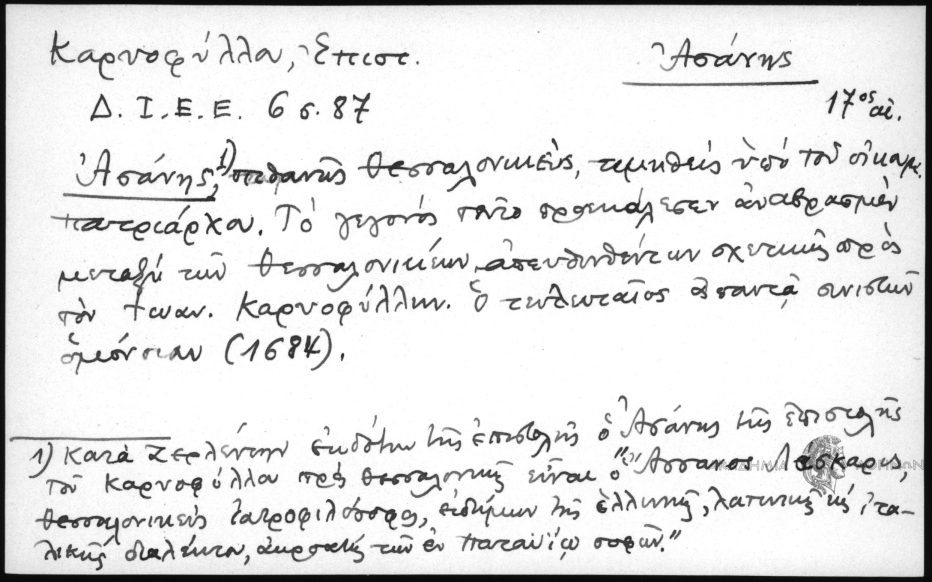 Καρυοφύλλου, Ἐπιστ.
Ἀσάνης
Δ. Ι. Ε. Ε. 6 σ. 87
17ος αἰ.
Ἀσάνης,1) πιθανῶς Θεσσαλονικεύς, τιμηθείς ὑπό τοῦ οἰκουμ.
πατριάρχου. Τό γεγονός τοῦτο προεκάλεσεν ἀναβρασμόν
μεταξύ τῶν Θεσσαλονικέων ἀπευθυνθέντων σχετικῶς πρός
τόν Ἰωαν. Καρυοφύλλην. Ὁ τελευταῖος ἀπαντᾷ συνιστῶν
ὁμόνοιαν (1684).
1) Κατά Ζερλέντην ἐκδότην τῆς ἐπιστολῆς ὁ Ἀσάνης τῆς ἐπιστολῆς
τοῦ Καρυοφύλλου πρός Θεσσαλονικεῖς εἶναι ὁ "Ἀσσανος Λάσκαρις,
Θεσσαλονικεύς ἰατροφιλόσοφος, εἰδήμων τῆς ἑλληνικῆς, λατινικῆς κ ἰτα-
λικῆς διαλέκτου, ἀκροατής τῶν ἐν Παταυίῳ σοφῶν."